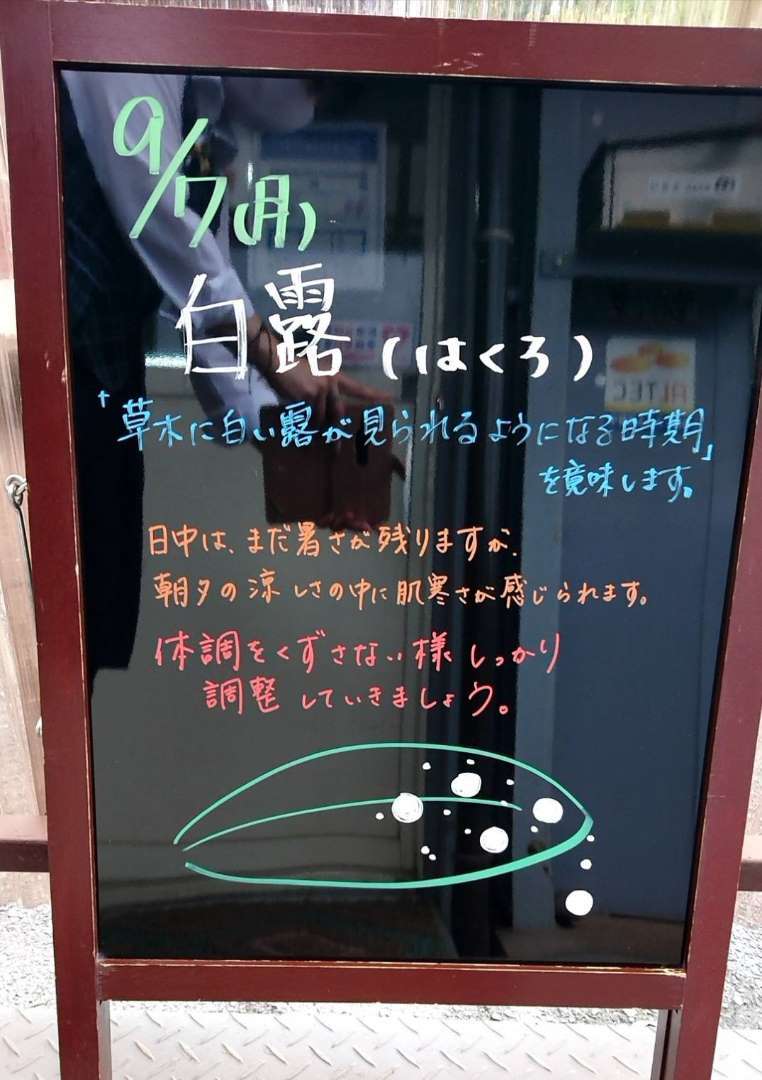 9/7(月)
白露(はくろ)
「草木に白い露が見られるようになる時期」
を意味します。
日中は、まだ暑さが残りますが、
朝夕の涼しさの中に肌寒さが感じられます。
体調をくずさない様しっかり
調整していきましょう。